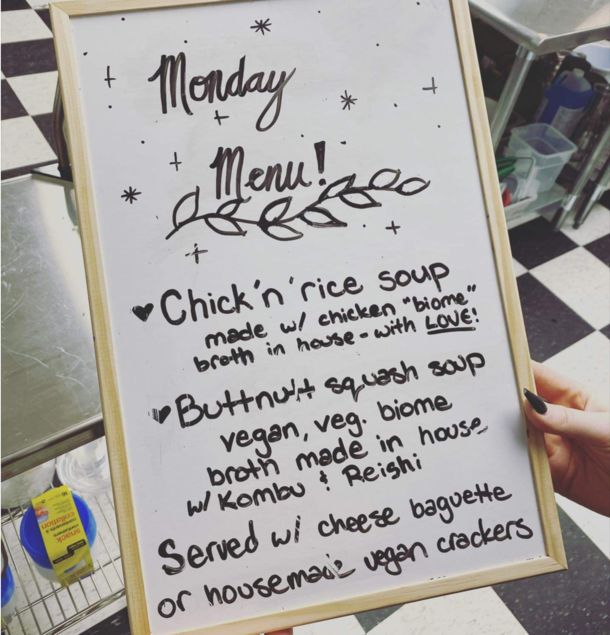 Monday
Menu!
Chick'n'rice soup
made w/ chicken "biome"
broth in house - with LOVE!
Buttnutt squash soup
vegan, veg. biome
broth made in house
w/ Kombu & Reishi
Served w/ cheese baguette
or housemade vegan crackers
snack